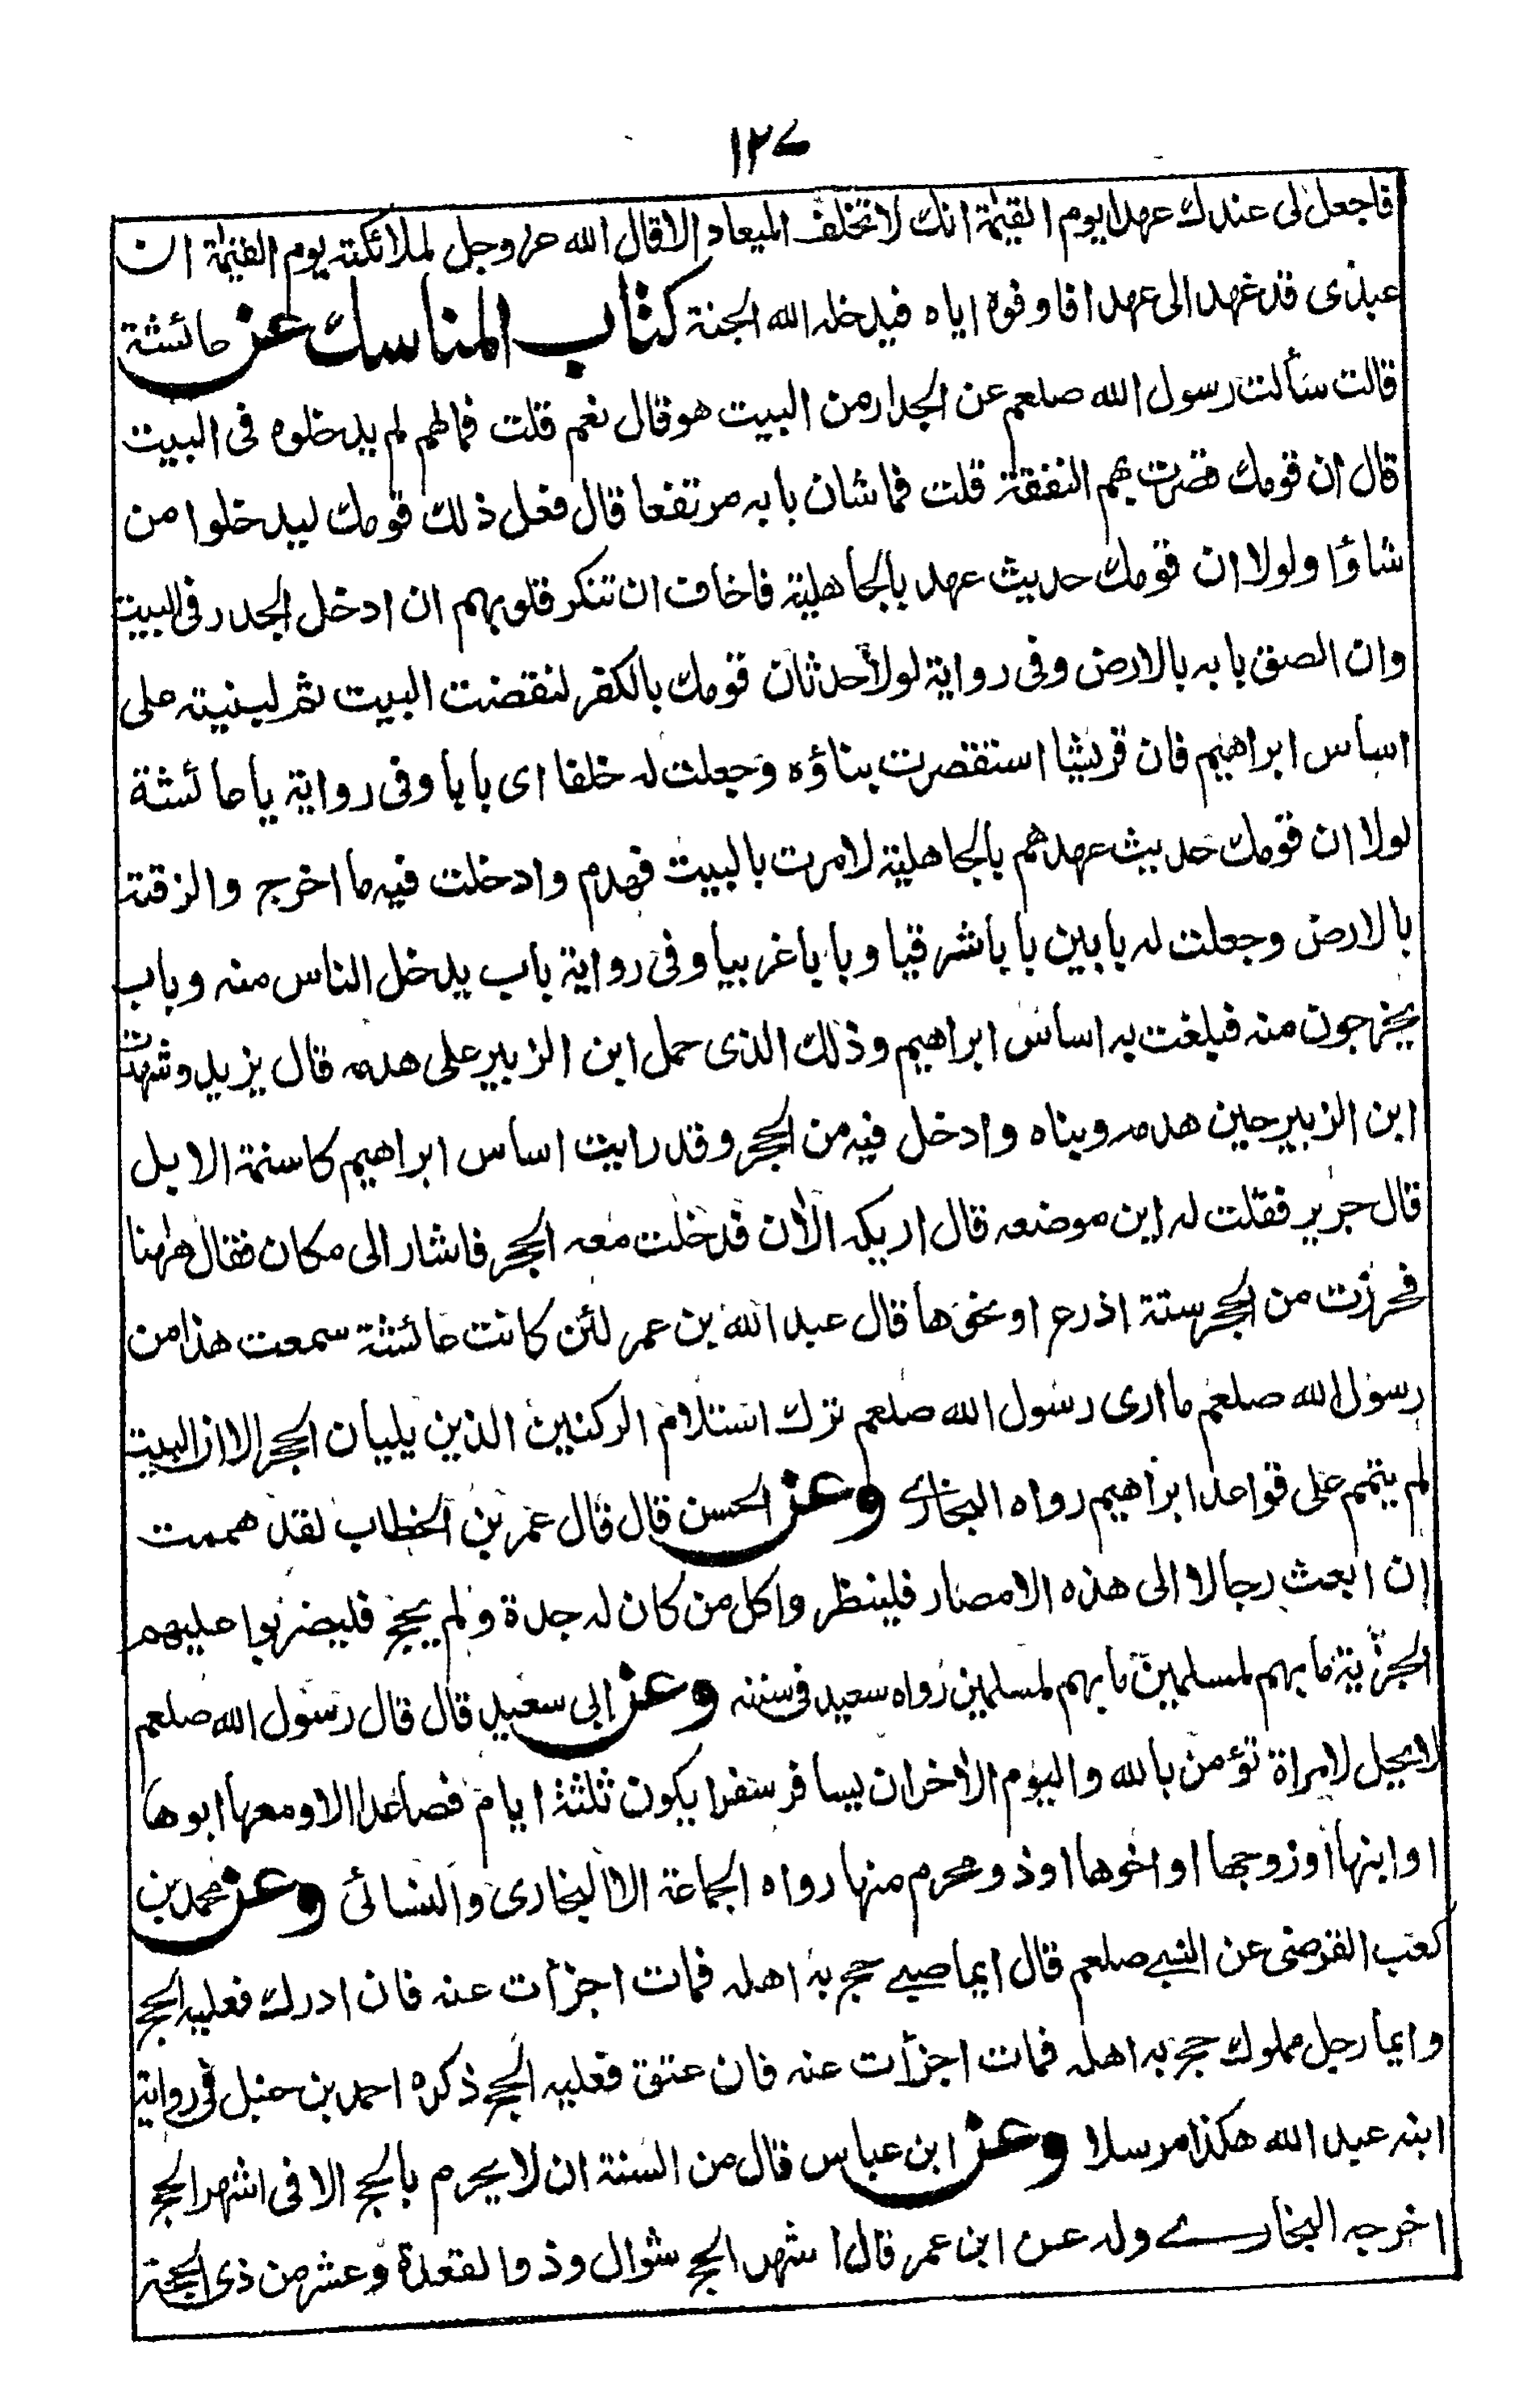 ١٢٧
فاجعل لى عندك عهدا يوم القيمة انك لا تخلف الميعاد الا قال الله عز وجل لملائكته يوم القيمة ان
عبدى قد عهد الى عهدا فاوفوه اياه فيدخله الله الجنة كتاب المناسك عن عائشة
قالت سألت رسول الله صلعم عن الجدار من البيت هو قال نعم قلت فمالهم لم يدخلوه فى البيت
قال ان قومك قصرت بهم النفقة قلت فما شان بابه مرتفعا قال فعل ذلك قومك ليدخلوا من
شاؤا ولولا ان قومك حديث عهد بالجاهلية فاخاف ان تنكر قلوبهم ان ادخل الجدر فى البيت
وان الصق بابه بالارض وفى رواية لولا حدثان قومك بالكفر لنقضت البيت ثم لبنيته على
اساس ابراهيم فان قريشا استقصرت بناؤه وجعلت له خلفا اى بابا وفى رواية يا عائشة
لولا ان قومك حديث عهدهم بالجاهلية لامرت بالبيت فهدم وادخلت فيه ما اخرج والزقته
بالارض وجعلت له بابين بابا شرقيا وبابا غربيا وفى رواية باب يدخل الناس منه وباب
يخرجون منه فبلغت به اساس ابراهيم وذلك الذى حمل ابن الزبير على هدمه قال يزيد وشهدت
ابن الزبير حين هدمه وبناه وادخل فيه من الحجر وقد رايت اساس ابراهيم كاسنمة الابل
قال جرير فقلت له اين موضعه قال اريكه الأن فدخلت معه الحجر فاشار الى مكان فقال ههنا
فحرزت من الحجر ستة اذرع او نحوها قال عبد الله بن عمر لئن كانت عائشة سمعت هذا من
رسول الله صلعم ما ارى رسول الله صلعم ترك استلام الركنين الذين يليان الحجر الا ان البيت
لم يتمم على قواعد ابراهيم رواه البخارى وعن الحسن قال قال عمر بن الخطاب لقد هممت
ان ابعث رجالا الى هذه الامصار فلينظروا كل من كان له جدة ولم يحج فليضربوا عليهم
الجزية ما بهم لمسلمين ما بهم لمسلمين رواه سعيد فى سننه وعن ابى سعيد قال قال رسول الله صلعم
لا يحل لامراة تؤمن بالله واليوم الأخر ان يسافر سفرا يكون ثلثة ايام فصاعدا الا ومعها ابوها
او ابنها او زوجها او اخوها او ذو محرم منها رواه الجماعة الا البخارى والنسائى وعن محمد بن
كعب القرضى عن النبى صلعم قال ايما صبى حج به اهله فمات اجزأت عنه فان ادرك فعليه الحج
وايما رجل مملوك حج به اهله فمات اجزأت عنه فان عتق فعليه الحج ذكره احمد بن حنبل فى رواية
ابنه عبد الله هكذا مرسلا وعن ابن عباس قال من السنة ان لا يحرم بالحج الا فى اشهر الحج
اخرجه البخارى وله عن ابن عمر قال اشهر الحج شوال وذو القعدة وعشر من ذى الحجة